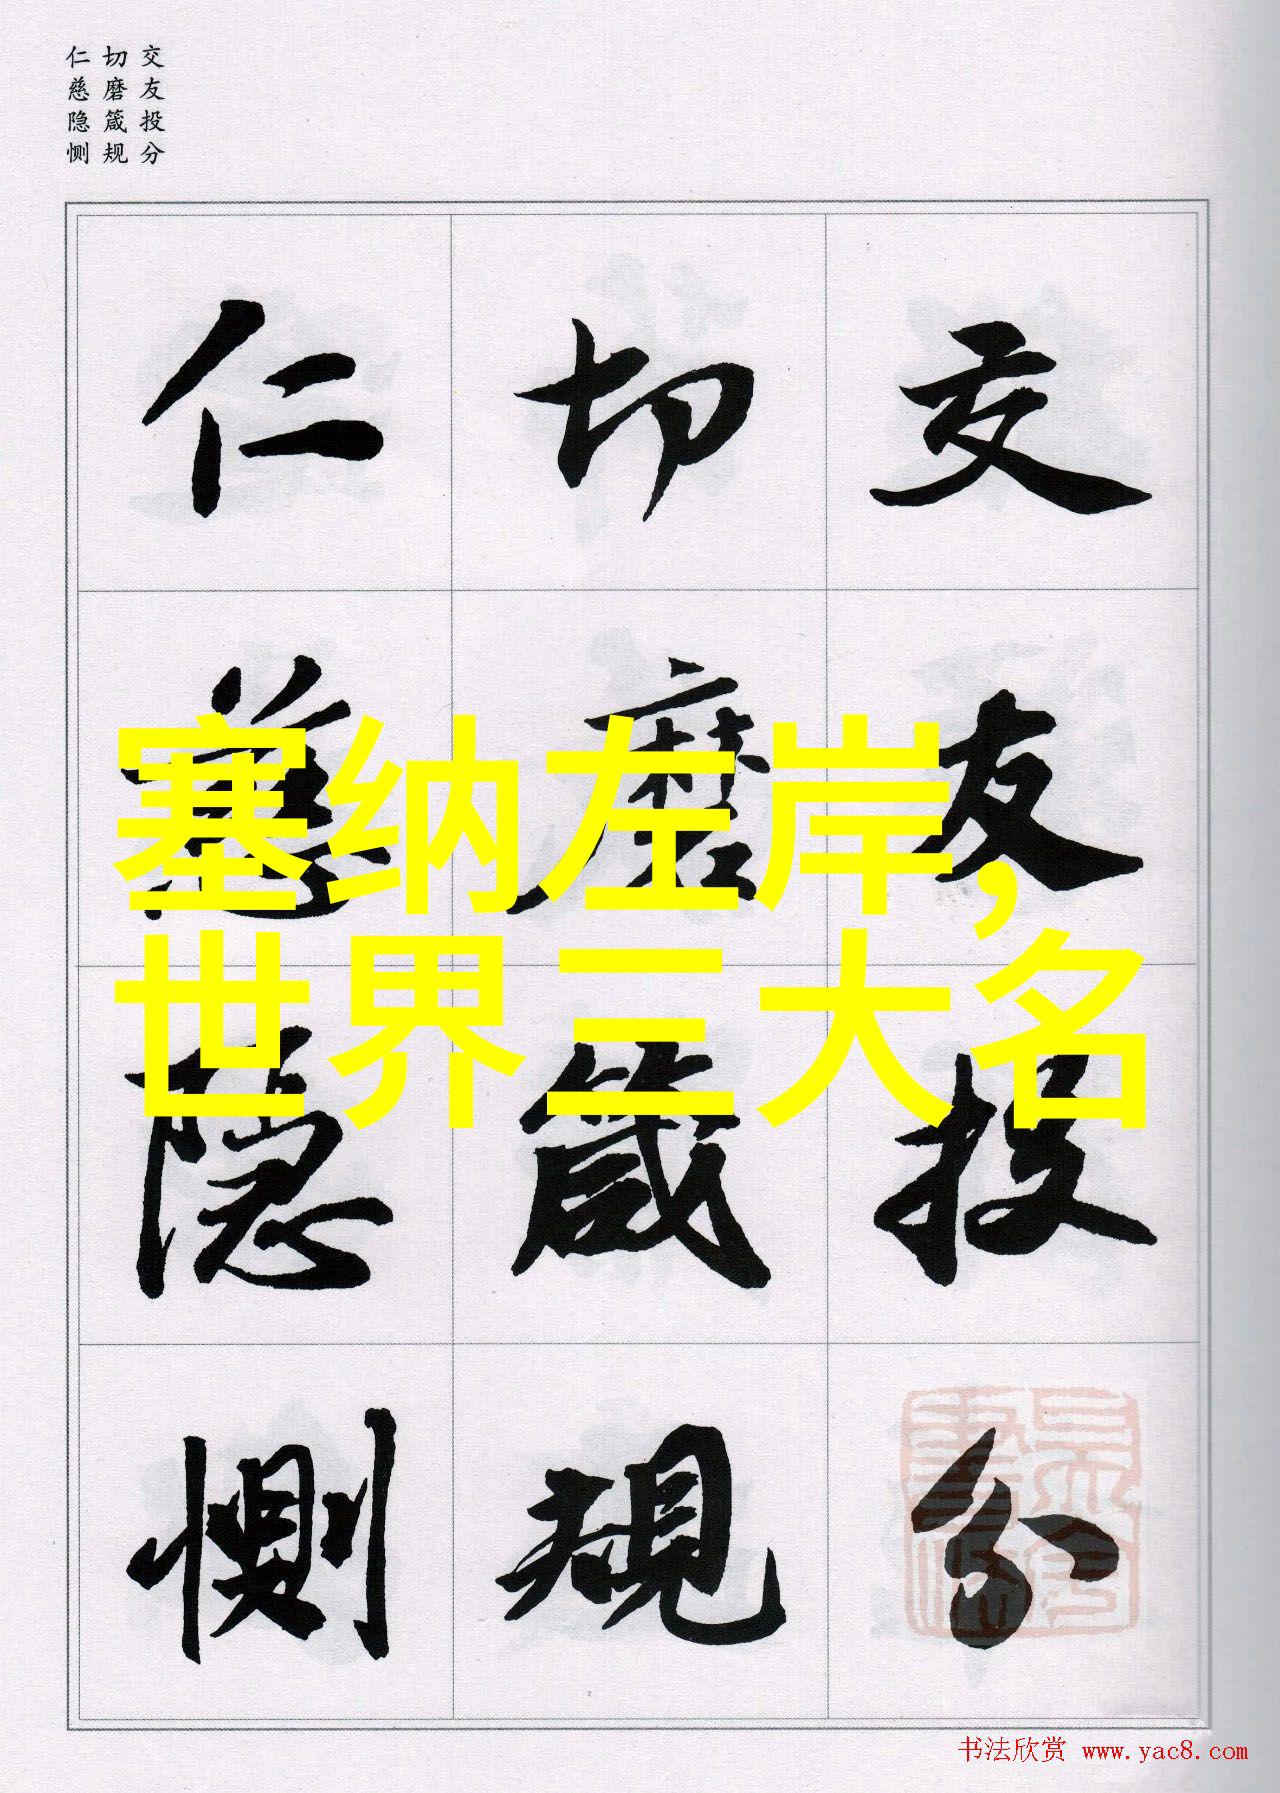 交友投分
切磨箴规
仁慈隐恻
交友投分
切磨箴规
仁慈隐恻
塞纳左岸，
世界三大名
书法欣赏 www.yac8.com